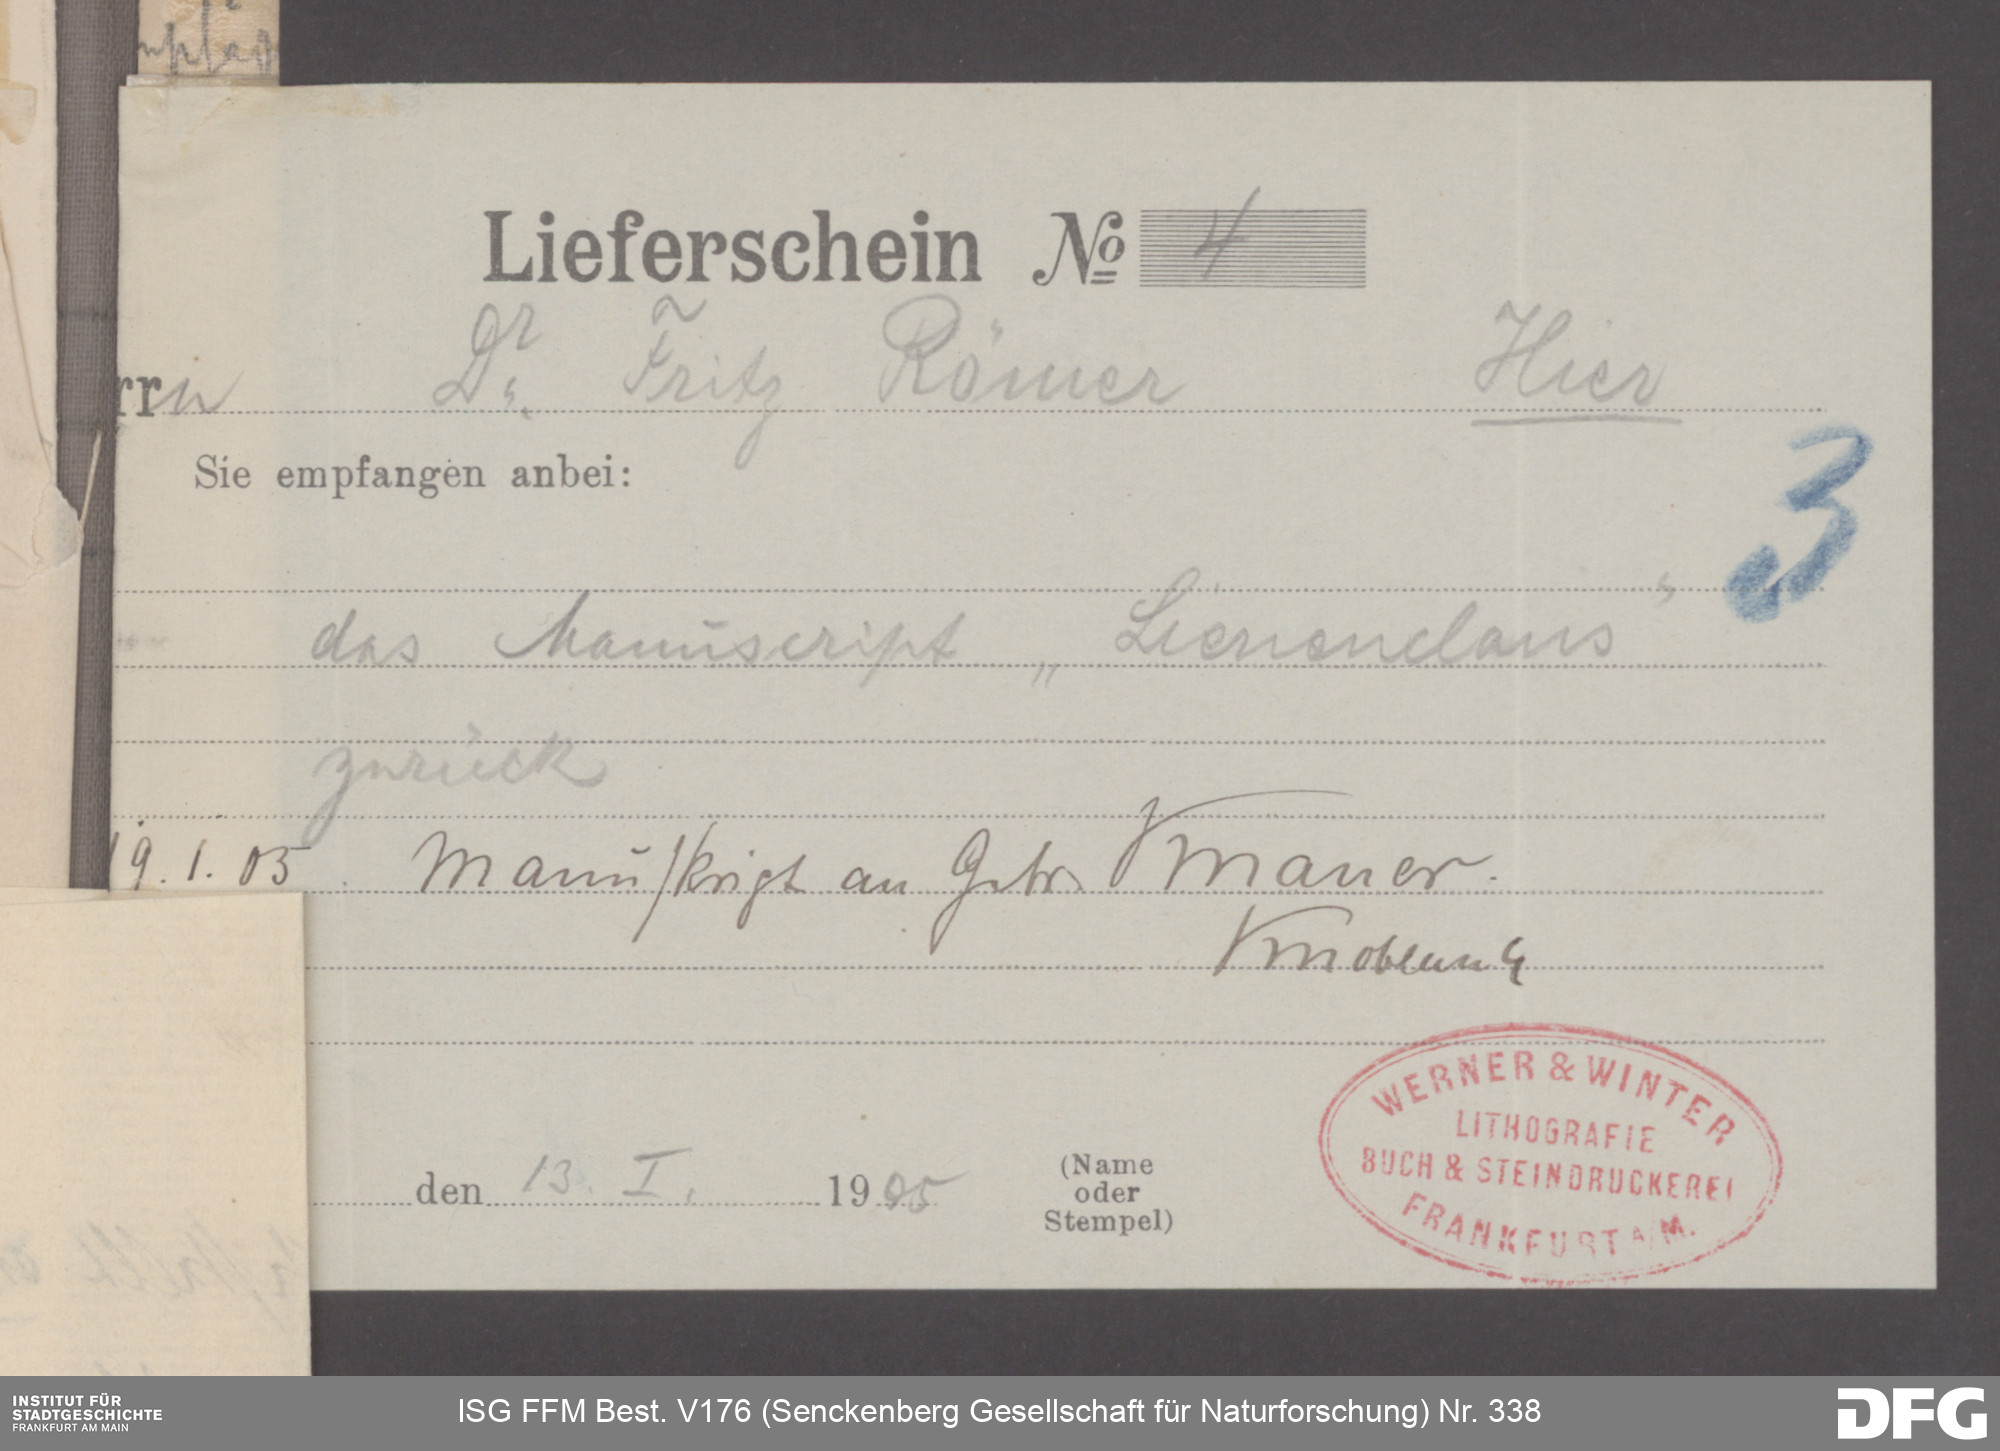 Lieferschein No 4
rrn Dr. Fritz Römer Hier
Sie empfangen anbei:
3
das Manuscript „Lienenclaus"
zurück
19.1.05. Manuskript an Gebr. Knauer.
Knoblauch
den 13. I. 1905
(Name
oder
Stempel)
WERNER & WINTER
LITHOGRAFIE
BUCH & STEINDRUCKEREI
FRANKFURT A/M.
INSTITUT FÜR
STADTGESCHICHTE
FRANKFURT AM MAIN
ISG FFM Best. V176 (Senckenberg Gesellschaft für Naturforschung) Nr. 338
DFG